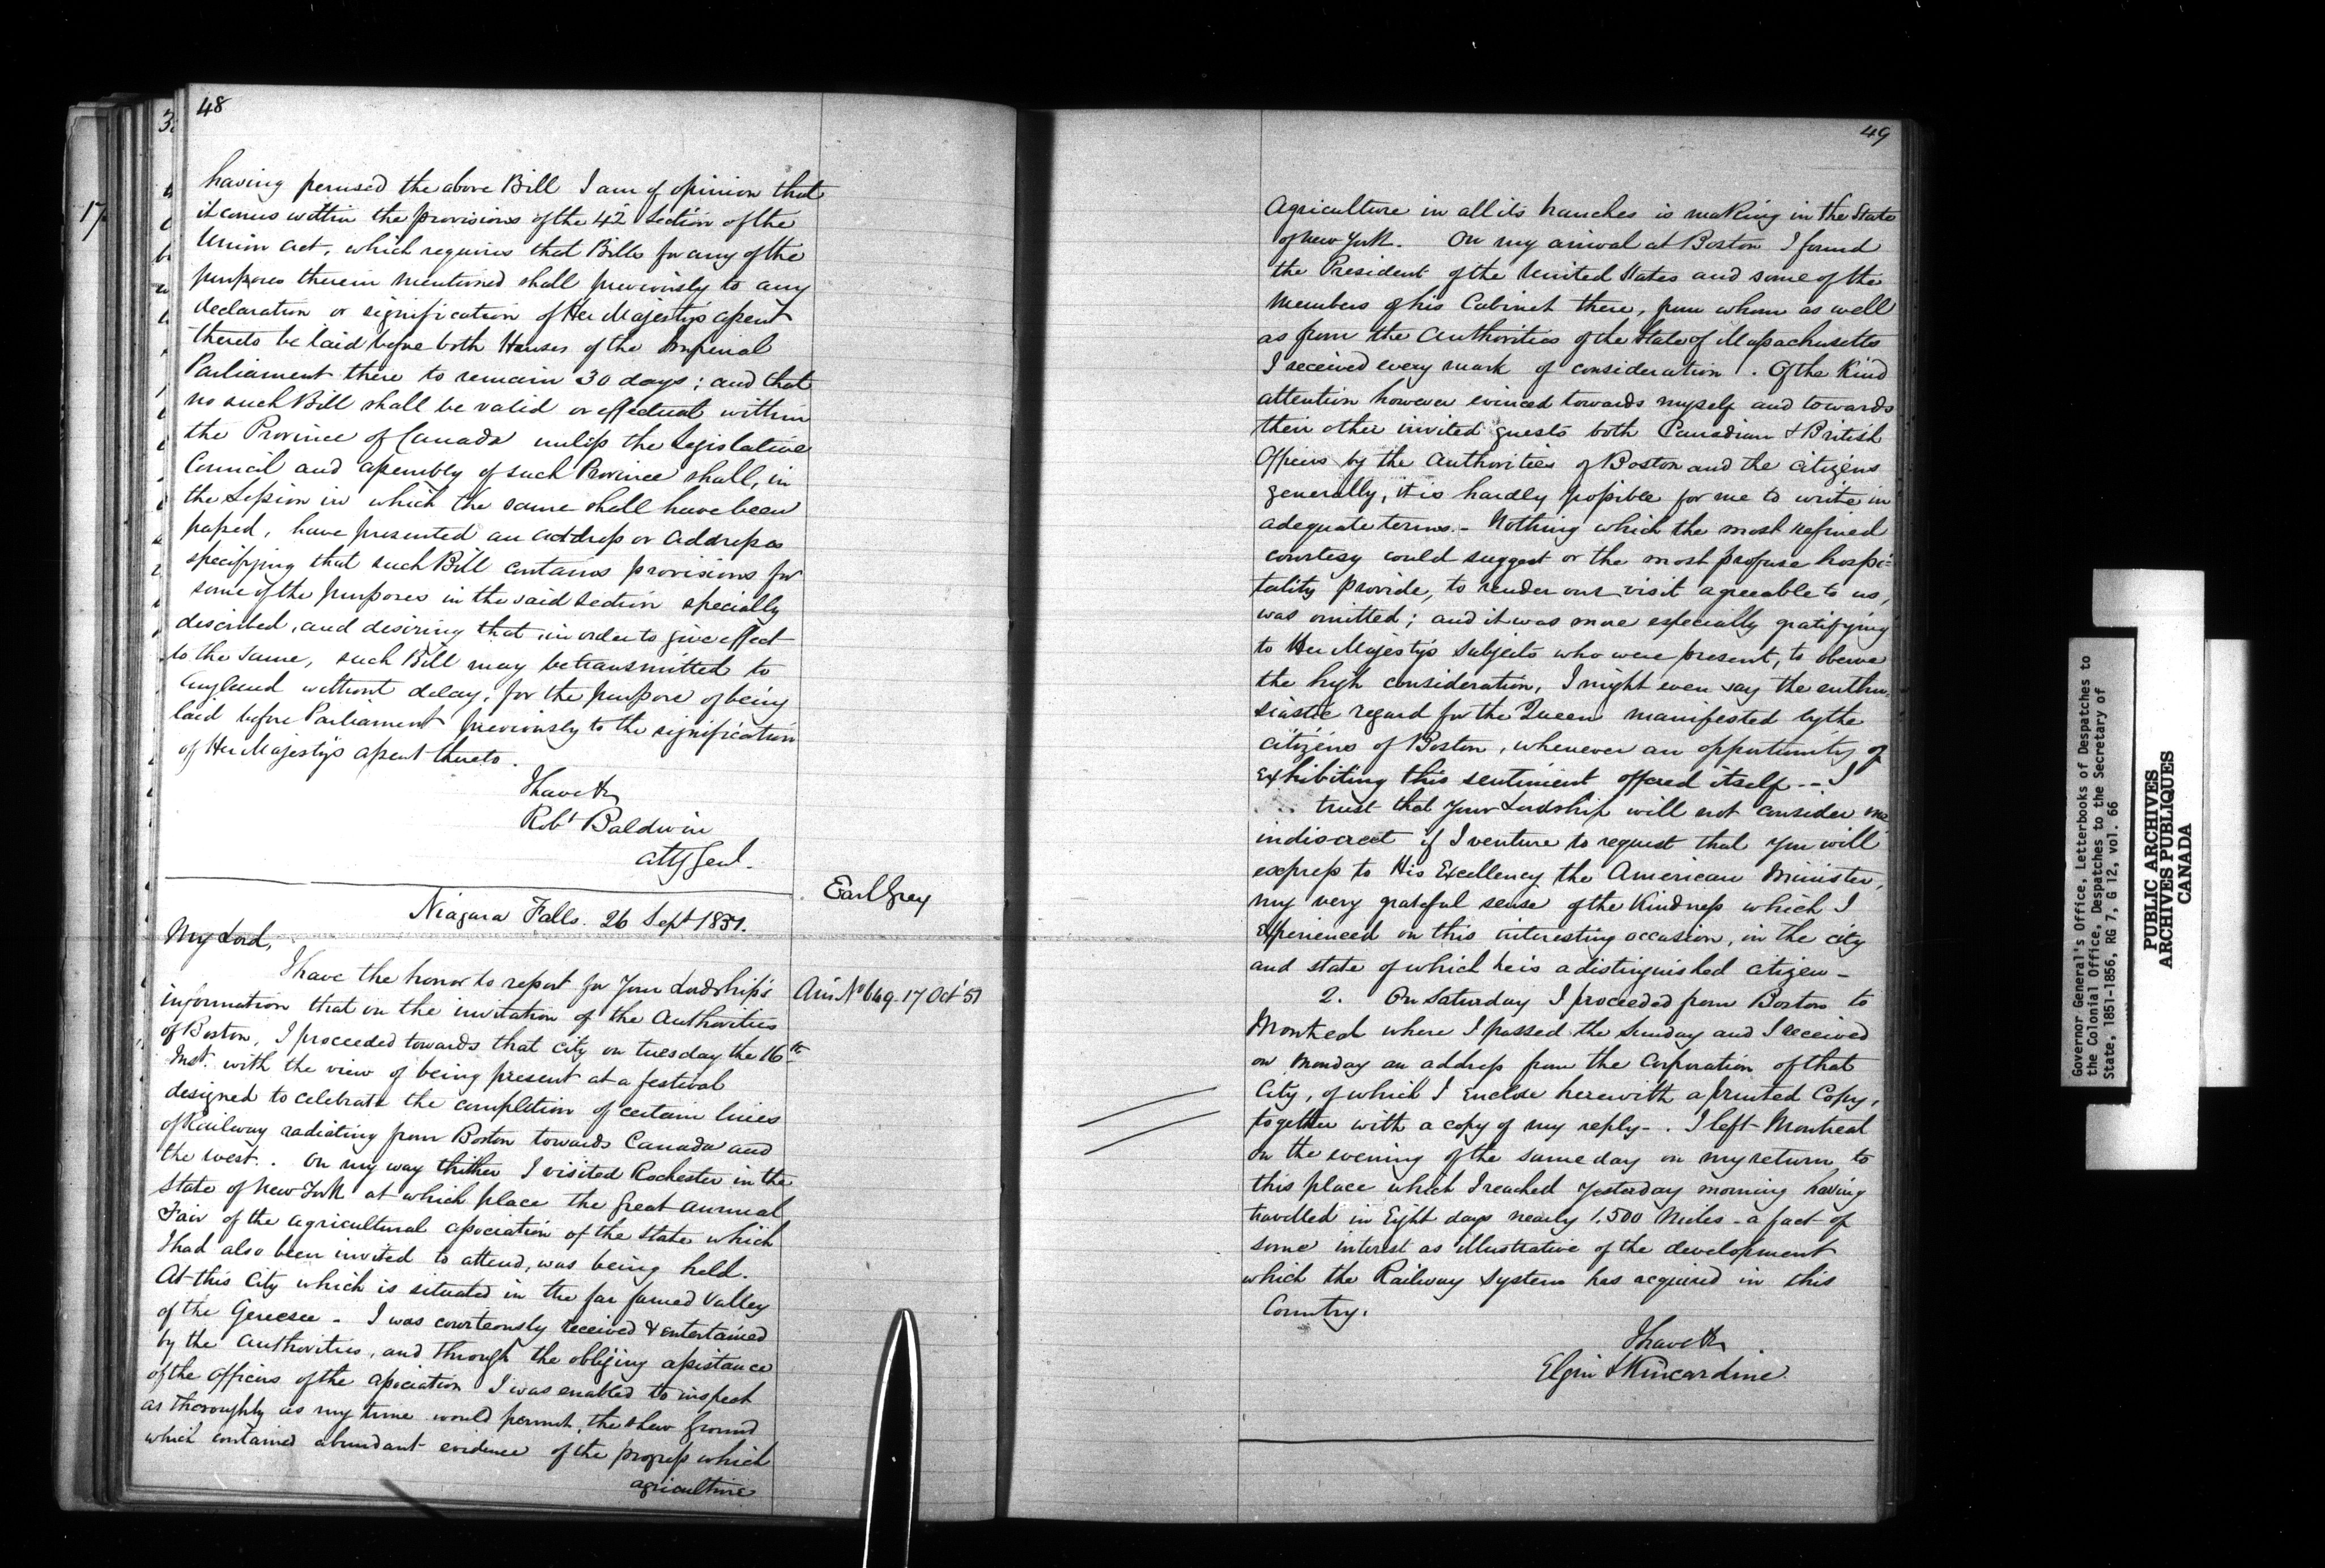 48
having perused the above Bill I am of opinion that
it comes within the provisions of the 42 Section of the
Union Act, which requires that Bills for any of the
purposes therein mentioned shall previously to any
declaration or signification of Her Majesty's assent
thereto be laid before both Houses of the Imperial
Parliament there to remain 30 days; and that
no such Bill shall be valid or effectual within
the Province of Canada unless the Legislative
Council and Assembly of such Province shall, in
the Session in which the same shall have been
passed, have presented an Address or Addresses
specifying that such Bill contains provisions for
some of the purposes in the said Section specially
described, and desiring that in order to give effect
to the same, such Bill may be transmitted to
England without delay, for the purpose of being
laid before Parliament previously to the signification
of Her Majesty's assent thereto.
I have &c
Robt Baldwin
Atty Genl.
Earl Grey
Niagara Falls. 26 Sept 1851.
My Lord,
I have the honor to report for Your Lordship's
Ans No 649. 17 Oct '51
information that on the invitation of the Authorities
of Boston, I proceeded towards that City on Tuesday the 16th
Inst. with the view of being present at a festival
designed to celebrate the completion of certain lines
of Railway radiating from Boston towards Canada and
the West. On my way thither I visited Rochester in the
State of New York at which place the Great Annual
Fair of the Agricultural Association of the State which
I had also been invited to attend, was being held.
At this City which is situated in the far famed Valley
of the Genesee - I was courteously received & entertained
by the Authorities, and through the obliging assistance
of the Officers of the Association I was enabled to inspect
as thoroughly as my time would permit, the shew Ground
which contained abundant evidence of the progress which
agriculture
49
Agriculture in all its branches is making in the State
of New York. On my arrival at Boston I found
the President of the United States and some of the
Members of his Cabinet there, from whom as well
as from the Authorities of the State of Massachusetts
I received every mark of consideration. Of the Kind
attention however evinced towards myself and towards
their other invited guests both Canadian & British
Officers by the Authorities of Boston and the Citizens
generally, it is hardly possible for me to write in
adequate terms. - Nothing which the most refined
courtesy could suggest or the most profuse hospi-
tality provide, to render our visit agreeable to us,
was omitted; and it was more especially gratifying
to Her Majesty's Subjects who were present, to observe
the high consideration, I might even say the enthu-
siastic regard for the Queen manifested by the
Citizens of Boston, whenever an opportunity of
Exhibiting this sentiment offered itself -- I
trust that Your Lordship will not consider me
indiscreet if I venture to request that you will
express to His Excellency the American Minister,
my very grateful sense of the Kindness which I
Experienced on this interesting occasion, in the city
and state of which he is a distinguished citizen -
2. On Saturday I proceeded from Boston to
Montreal where I passed the Sunday and I received
on Monday an address from the Corporation of that
City, of which I Enclose herewith a printed Copy,
together with a copy of my reply -. I left Montreal
on the evening of the same day on my return to
this place which I reached Yesterday morning having
travelled in Eight days nearly 1,500 Miles - a fact of
some interest as illustrative of the development
which the Railway System has acquired in this
Country.
I have &c
Elgin & Kincardine
Governor General's Office, Letterbooks of Despatches to
the Colonial Office, Despatches to the Secretary of
State, 1851-1856, RG 7, G 12, vol. 66
PUBLIC ARCHIVES
ARCHIVES PUBLIQUES
CANADA